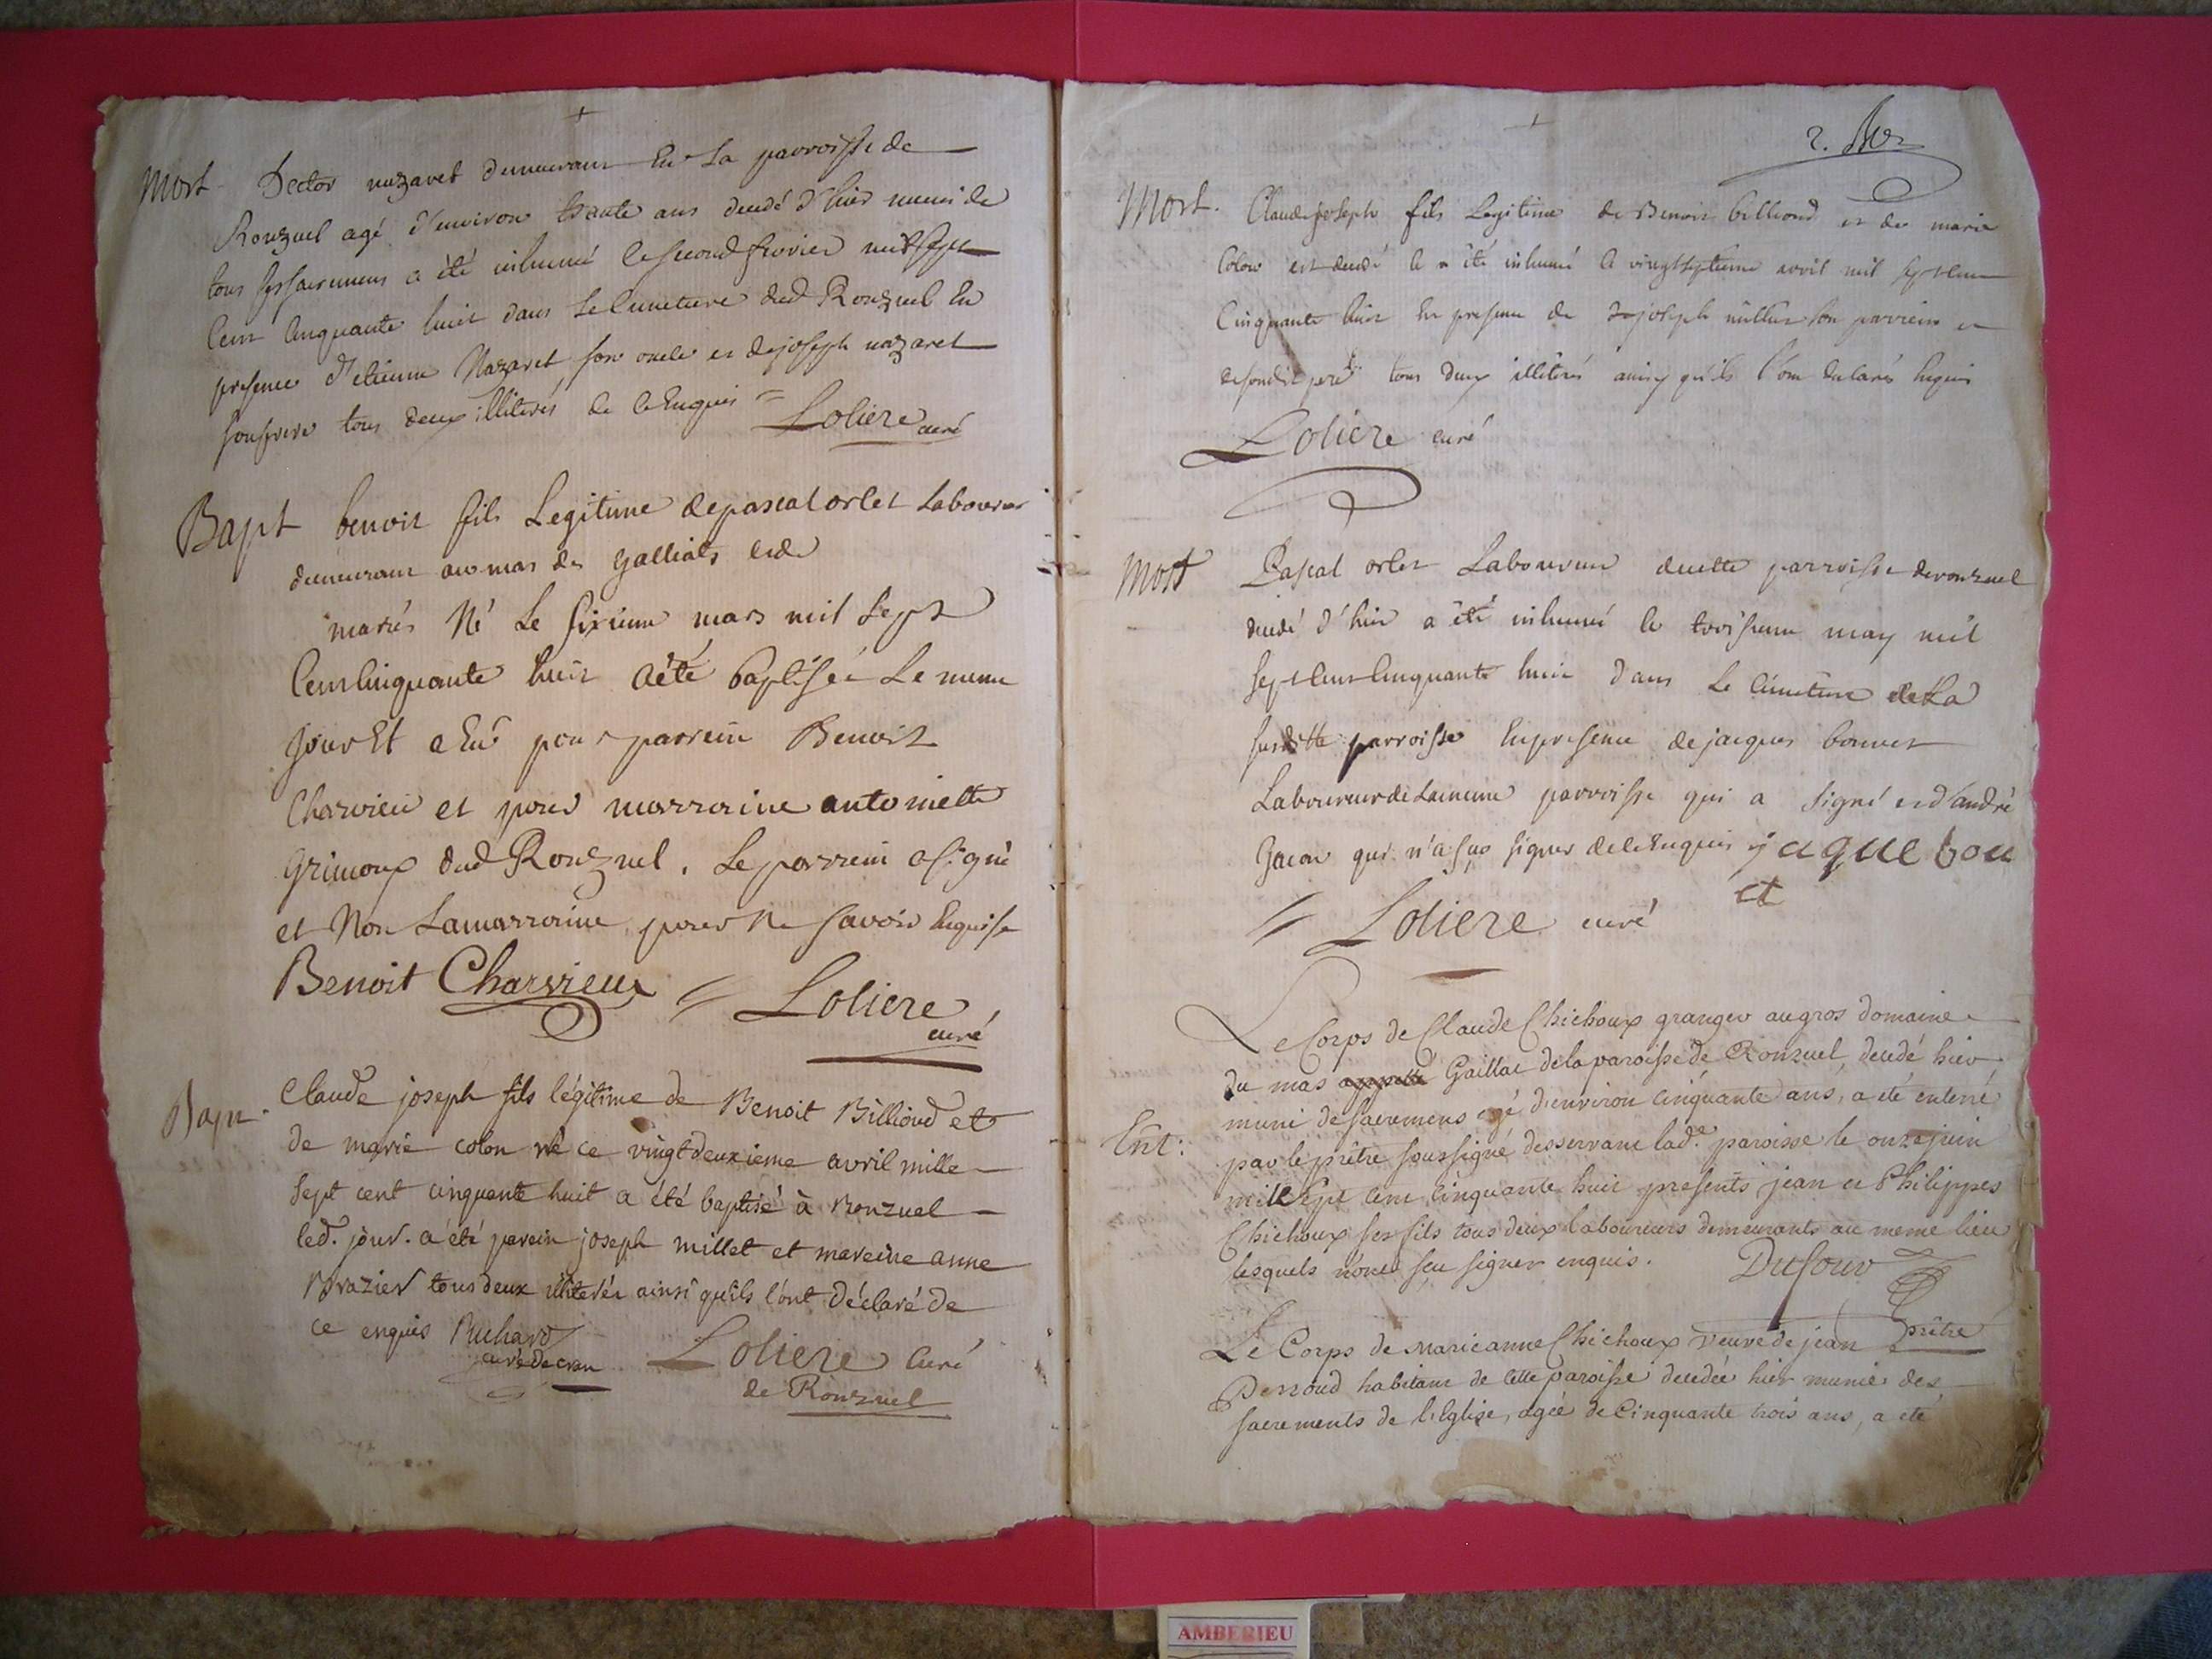 Mort - Hector nazaret demeurant En la parroisse de
Ronzuel agé d'environ trante ans decedé d'hier muni de
tous ses sacremens a été inhumé le second fevrier mil sept
Cent Cinquante huit dans le Cimetiere dud Ronzuel En
presence d'etienne Nazaret son oncle et de joseph nazaret
son frere tous deux illiterés de ce Enquis = Loliere curé
Bapt benoit fils Legitime de pascal orlet Laboureur
demeurant au mas des galliats et de
mariés Né Le sixieme mars mil sept
Cent Cinquante huit a été baptisée Le meme
jour Et a Eu pour parrein Benoit
Charvieu et pour marraine antoinette
Grimoux dud Ronzuel. Le parrein a signé
et Non La marraine pour ne savoir Enquise
Benoit Charvieux = Loliere
curé
Bapt - Claude joseph fils légitime de Benoit Billioud et
de marie colon né ce vingt deuxieme avril mille
sept cent cinquante huit a été baptisé à Ronzuel
led. jour. a été parein joseph millet et mareine anne
Brazier tous deux illiterés ainsi qu'ils l'ont déclaré de
ce enquis Richard
curé de cran Loliere Curé
de Ronzuel
2.
Mort. Claude joseph fils Legitime de Benoit billioud et de marie
Colon est decedé le a été inhumé le vingt septieme avril mil sept cent
Cinquante huit En presence de joseph millet son parrein et
de sondit pere tous deux illiterés ainsy qu'ils l'ont declarés Enquis
Loliere curé
Mort Pascal orlet Laboureur de cette parroisse de ronzuel
decedé d'hier a été inhumé le troisieme may mil
sept Cent Cinquante huit dans Le Cimetiere de La
susditte parroisse En presence de jacques bonnet
Laboureur de La meme parroisse qui a signé et d'andré
Gacon qui n'a sçu signer de ce Enquis jaque bou
et
= Loliere curé
Le Corps de Claude Chichoux granger au gros domaine
du mas appellé Gaillat de la paroisse de Ronzuel, decedé hier
muni de sacremens agé d'environ cinquante ans, a été enterré
Ent: par le prêtre soussigné desservant lad.e paroisse le onze juin
mille sept cent cinquante huit presents jean et Philippes
Chichoux ses fils tous deux laboureurs demeurants au meme lieu
lesquels n'ont sçu signer enquis. Dufour
prêtre
Le Corps de marie anne Chichoux veuve de jean
Perroud habitant de cette paroisse decedée hier munie des
sacrements de l'Eglise, agée de Cinquante trois ans, a été
AMBERIEU